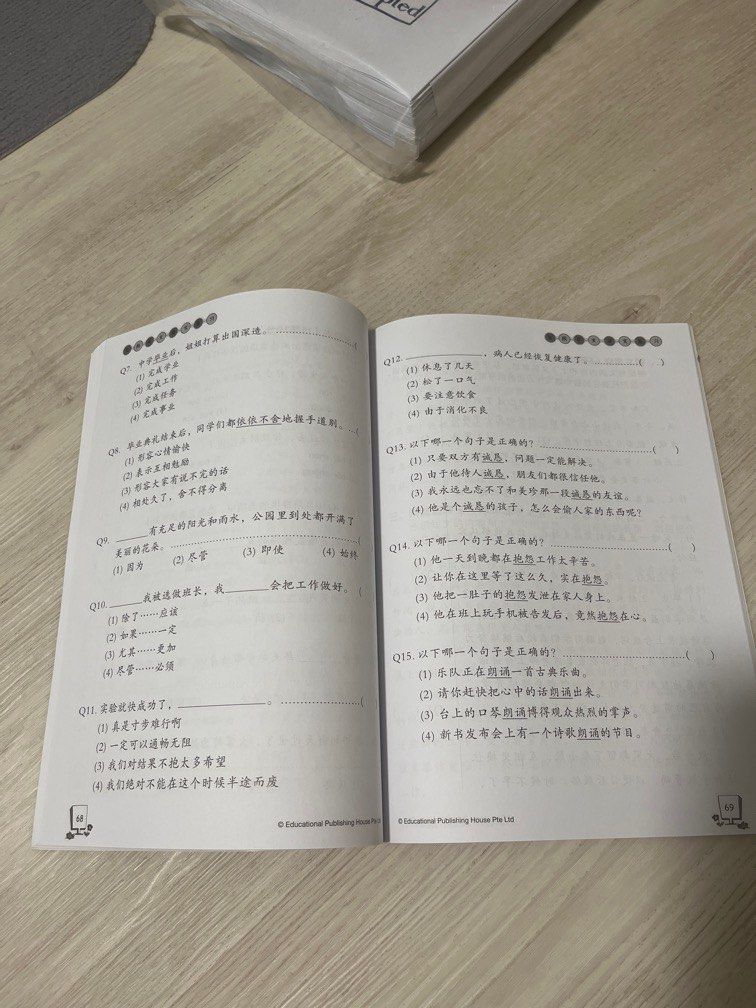 pled
Q7. 中学毕业后，姐姐打算出国深造。……………………(
(1) 完成学业
(2) 完成工作
(3) 完成任务
(4) 完成事业
Q8. 毕业典礼结束后，同学们都依依不舍地握手道别。…(
(1) 形容心情愉快
(2) 表示互相勉励
(3) 形容大家有说不完的话
(4) 相处久了，舍不得分离
Q9. ______有充足的阳光和雨水，公园里到处都开满了
美丽的花朵。……………………………………(
(1) 因为 (2) 尽管 (3) 即使 (4) 始终
Q10. ______我被选做班长，我______会把工作做好。(
(1) 除了……应该
(2) 如果……一定
(3) 尤其……更加
(4) 尽管……必须
Q11. 实验就快成功了，____________。……………………(
(1) 真是寸步难行啊
(2) 一定可以通畅无阻
(3) 我们对结果不抱太多希望
(4) 我们绝对不能在这个时候半途而废
68
© Educational Publishing House Pte
Q12. ____________，病人已经恢复健康了。……………( )
(1) 休息了几天
(2) 松了一口气
(3) 要注意饮食
(4) 由于消化不良
Q13. 以下哪一个句子是正确的？……………………………( )
(1) 只要双方有诚恳，问题一定能解决。
(2) 由于他待人诚恳，朋友们都很信任他。
(3) 我永远也忘不了和美珍那一段诚恳的友谊。
(4) 他是个诚恳的孩子，怎么会偷人家的东西呢？
Q14. 以下哪一个句子是正确的？……………………………( )
(1) 他一天到晚都在抱怨工作太辛苦。
(2) 让你在这里等了这么久，实在抱怨。
(3) 他把一肚子的抱怨发泄在家人身上。
(4) 他在班上玩手机被告发后，竟然抱怨在心。
Q15. 以下哪一个句子是正确的？……………………………( )
(1) 乐队正在朗诵一首古典乐曲。
(2) 请你赶快把心中的话朗诵出来。
(3) 台上的口琴朗诵博得观众热烈的掌声。
(4) 新书发布会上有一个诗歌朗诵的节目。
© Educational Publishing House Pte Ltd
69